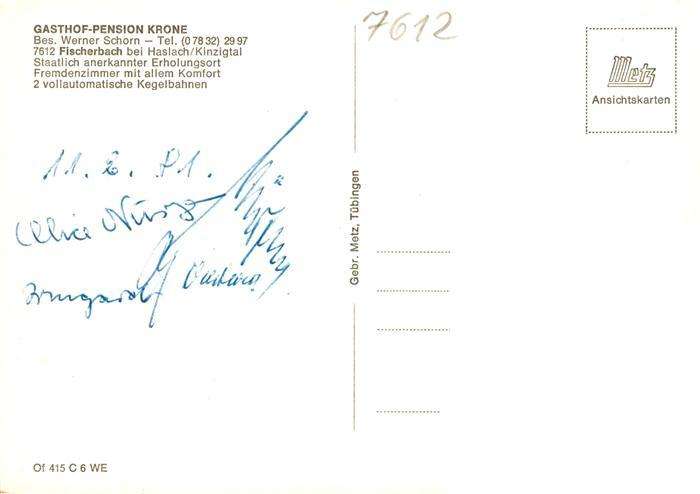 GASTHOF-PENSION KRONE
Bes. Werner Schorn — Tel. (0 78 32) 29 97
7612 Fischerbach bei Haslach/Kinzigtal
Staatlich anerkannter Erholungsort
Fremdenzimmer mit allem Komfort
2 vollautomatische Kegelbahnen
7612
Metz
Ansichtskarten
Alice
Irmgard
Gebr. Metz, Tübingen
Of 415 C 6 WE